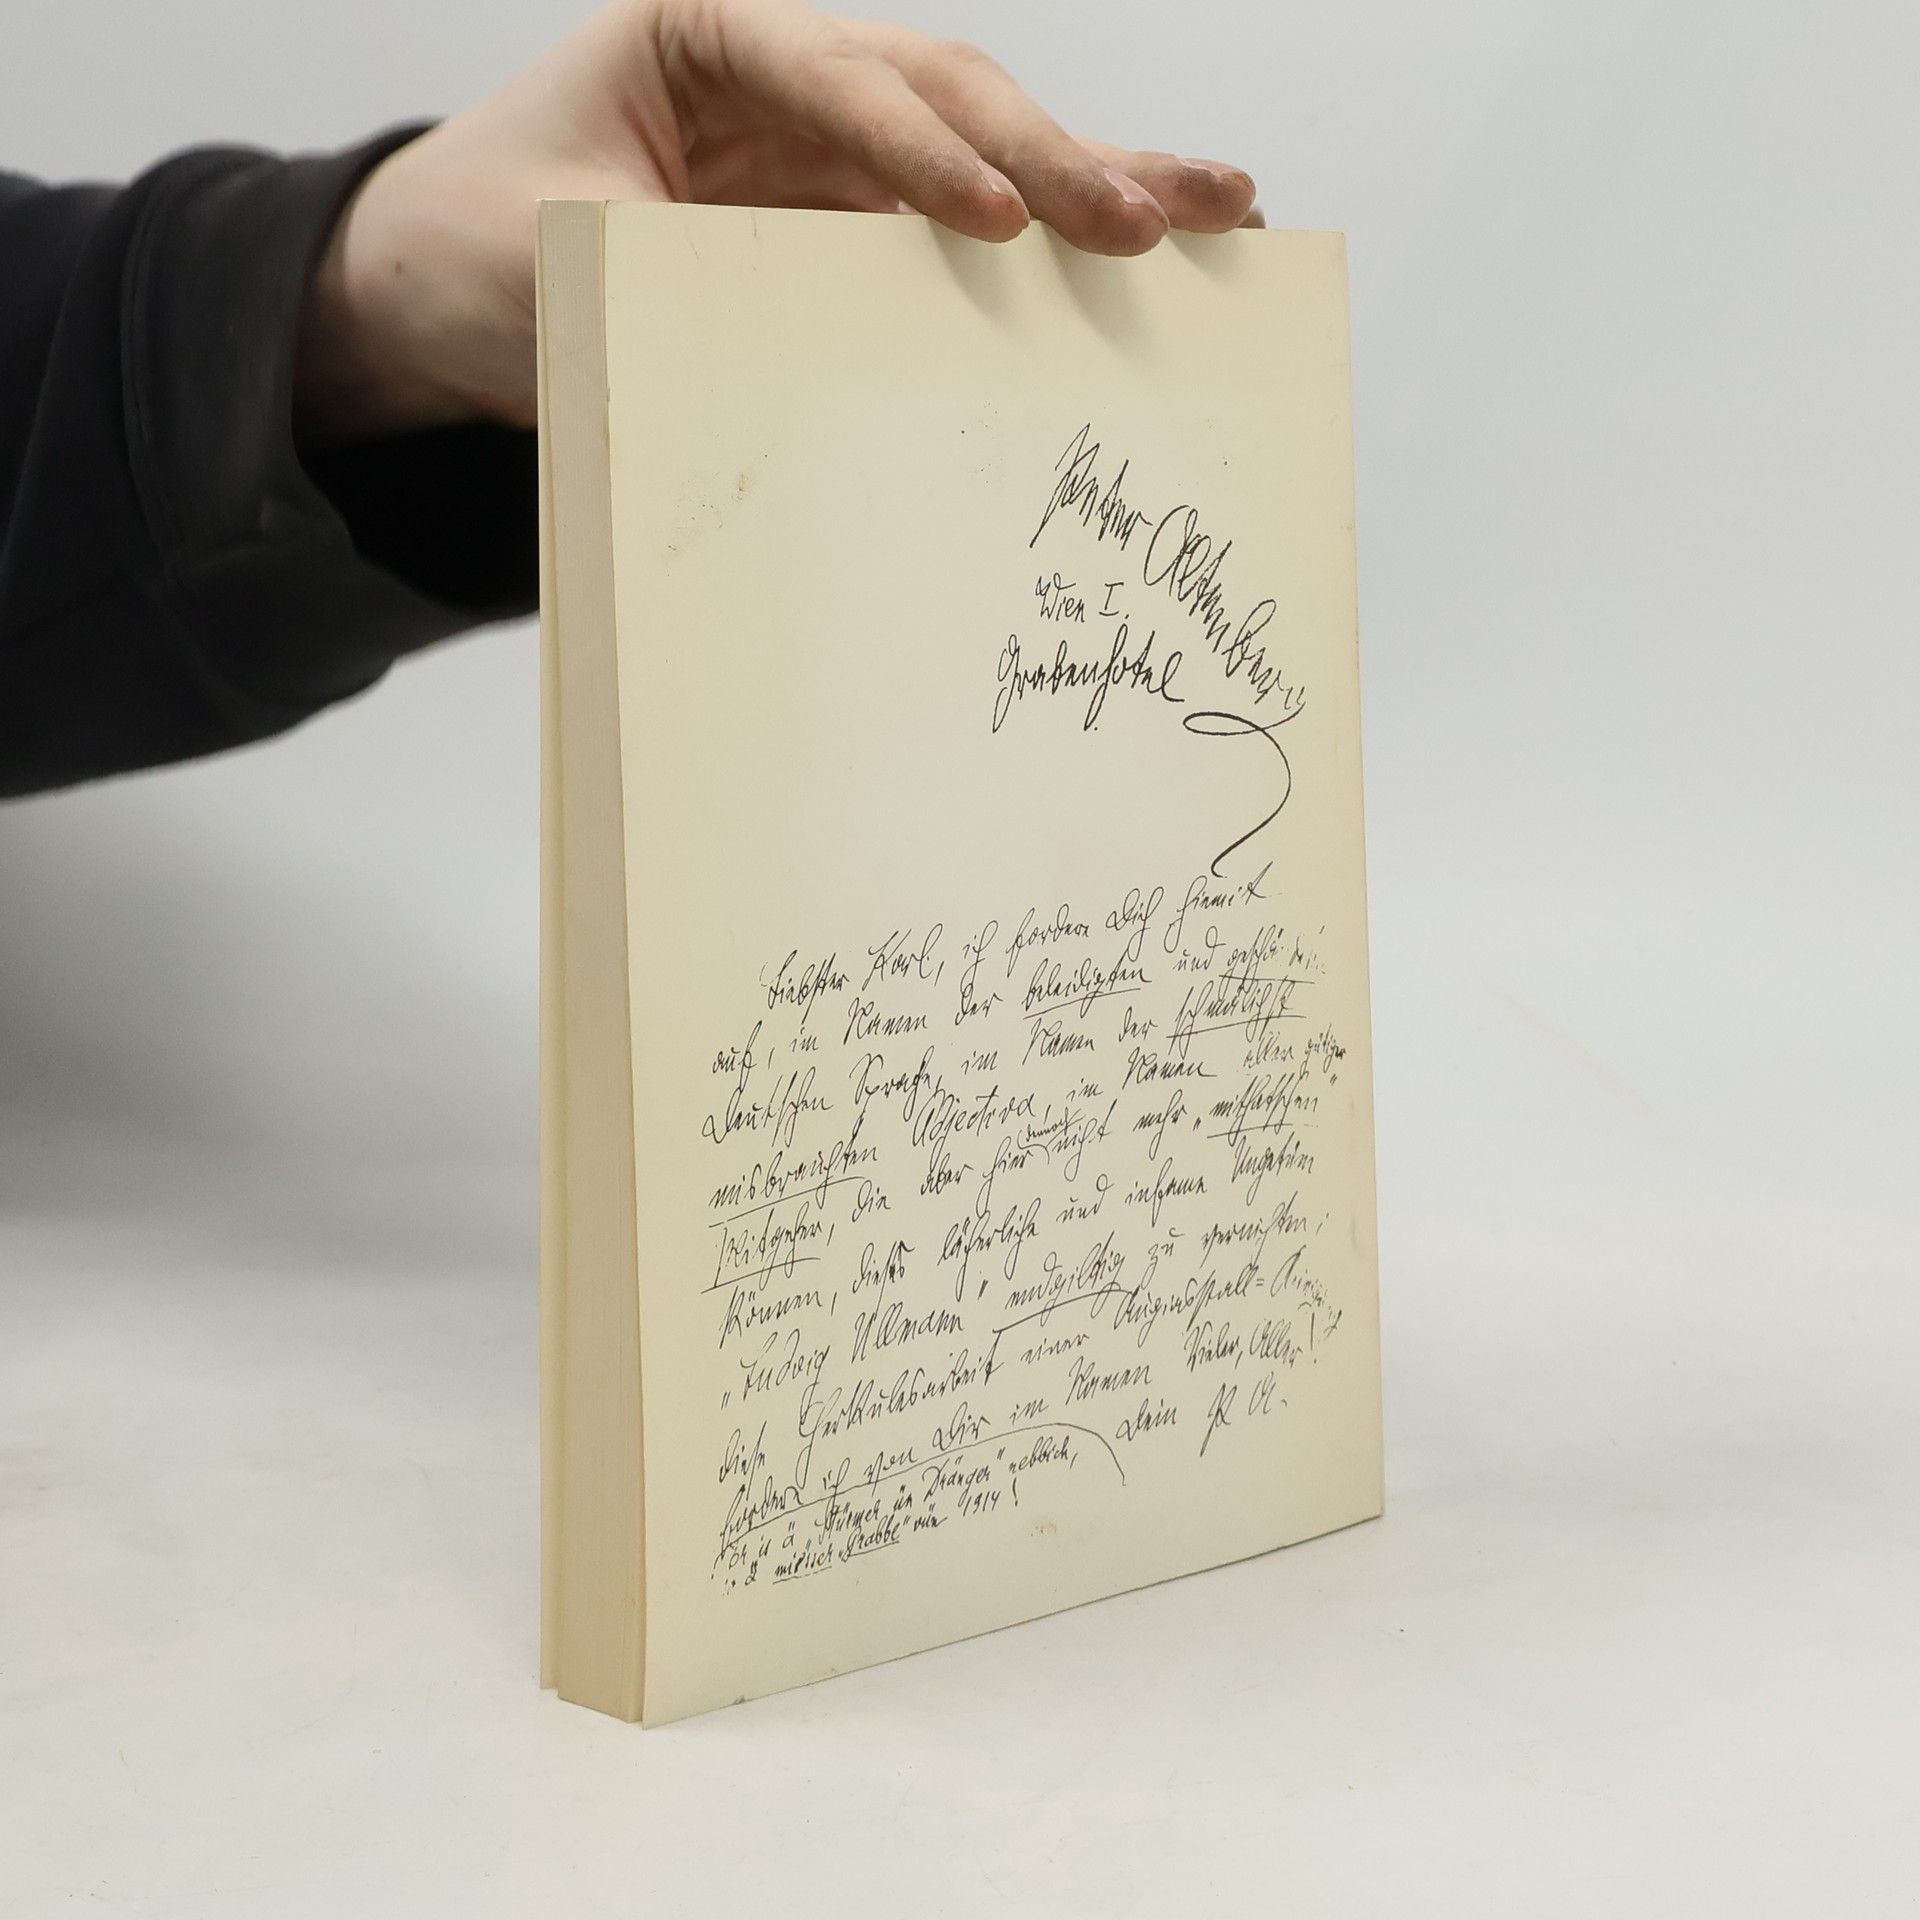 Peter Altenberg
Wien I.
Grabenhotel
Liebster Karl, ich fordere Dich hiemit
auf, im Namen der beleidigten und
deutschen Sprache, im Namen der schmählichst
misbrauchten Adjectiva, im Namen aller gütiger
Mitgeher, die aber hier dennoch nicht mehr „mithatschen"
können, dieses lächerliche und infame Ungetüm
„Ludwig Ullmann" endgiltig zu vernichten;
diese Herkulesarbeit einer Augiasstall=
fordere ich von Dir im Namen Vieler, Aller!
Dein P A.
is ä „Stürmer ün Dränger" nebbich,
ä „Grabbe" vün 1914!